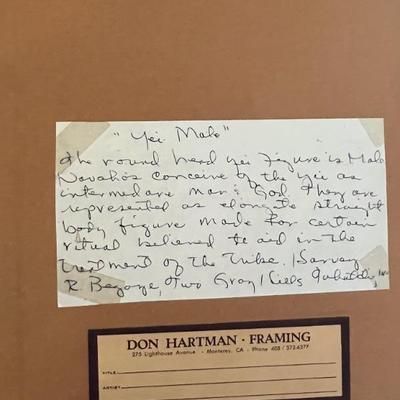 "Yei Male"
The round head yei figure is Male
Navahos conceive of the yei as
intermed are man & God. They are
represented as elongate straight
body figure made for certain
ritual believed to aid in the
treatment of the tribe.
R. Begaye, Two Gray Hills
DON HARTMAN · FRAMING
275 Lighthouse Avenue - Monterey, CA - Phone 408 / 372-6377
TITLE
ARTIST